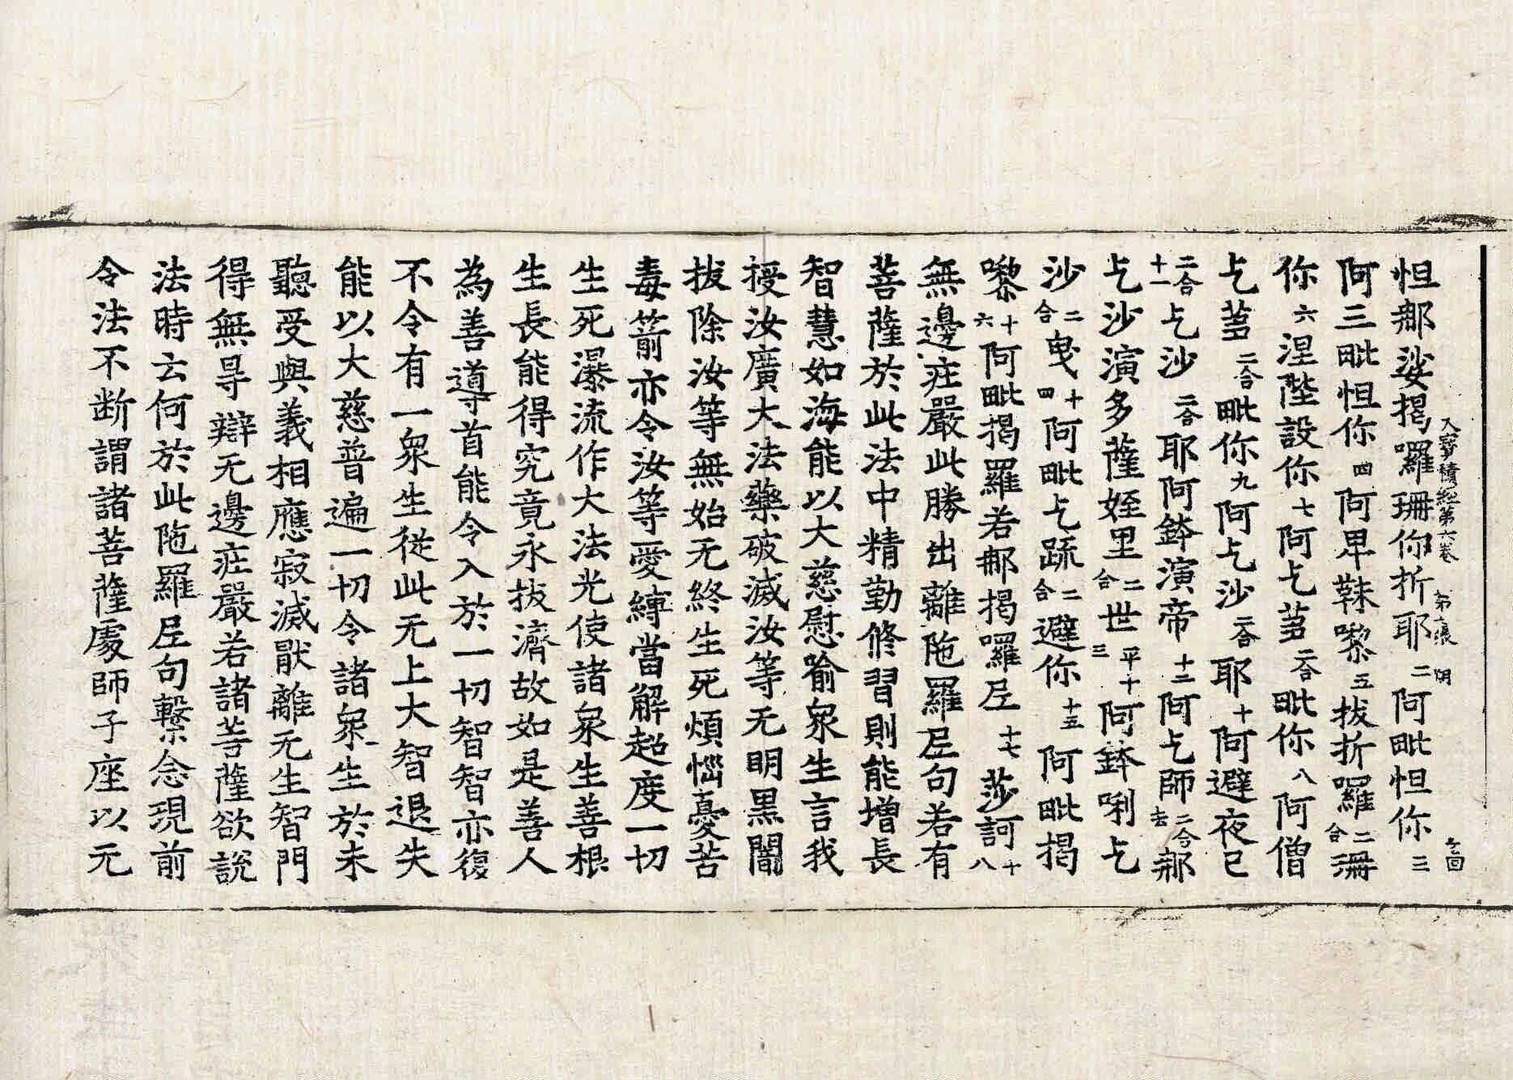 大寶積經第六卷 第六張 問
怛那娑揭囉珊你折耶二阿毗怛你三
阿三毗怛你四阿卑靺嚟五拔折囉二合珊
你六涅陛設你七阿乞芻二合毗你八阿僧
乞芻二合毗你九阿乞沙二合耶十阿避夜已
十一二合乞沙二合耶阿鉢演帝十二阿乞師二合去那
乞沙演多薩姪里二合世平十三阿鉢唎乞
沙二合曳十四阿毗乞䟽二合避你十五阿毗揭
嚟十六阿毗揭羅若那揭囉𡰱十七莎訶十八
無邊庄嚴此勝出離陁羅𡰱句若有
菩薩於此法中精勤修習則能增長
智慧如海能以大慈慰喻衆生言我
授汝廣大法藥破滅汝等无明黑闇
拔除汝等無始无終生死煩惱憂苦
毒箭亦令汝等愛縛當解超度一切
生死瀑流作大法光使諸衆生善根
生長能得究竟永拔濟故如是善人
為善導首能令入於一切智智亦復
不令有一衆生從此无上大智退失
能以大慈普遍一切令諸衆生於未
聽受與義相應寂滅猒離无生智門
得無㝵辯无邊庄嚴若諸菩薩欲說
法時云何於此陁羅𡰱句繫念現前
令法不断謂諸菩薩處師子座以无